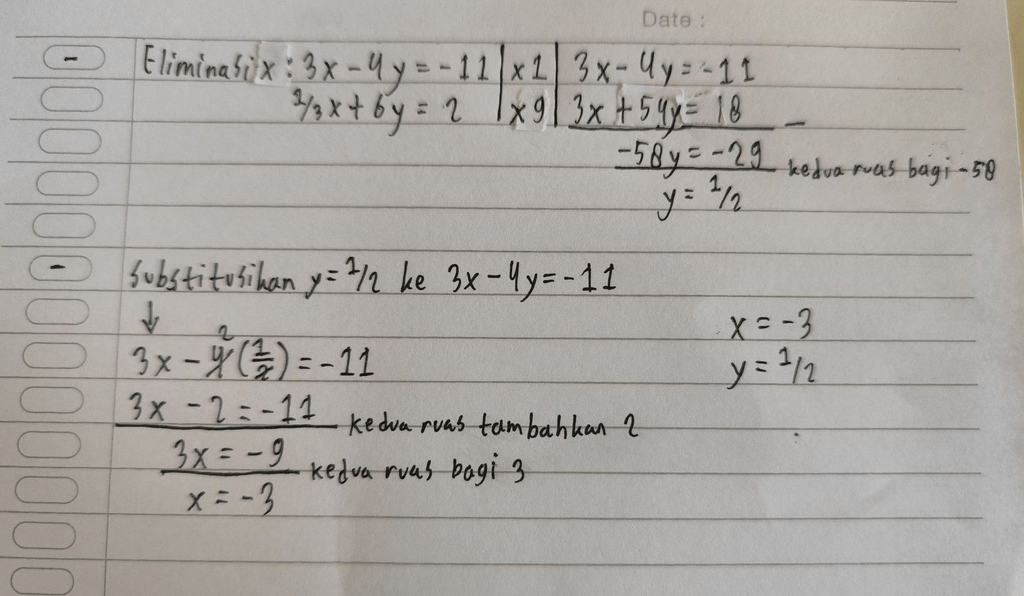 Date :
- Eliminasi x : 3x - 4y = -11 | x1 | 3x - 4y = -11
1/3x + 6y = 2 | x9 | 3x + 54y = 18 -
-58y = -29 kedua ruas bagi -58
y = 1/2
- Substitusikan y = 1/2 ke 3x - 4y = -11
↓
x = -3
3x - 4 2 (1/2) = -11
y = 1/2
3x - 2 = -11 kedua ruas tambahkan 2
3x = -9 kedua ruas bagi 3
x = -3